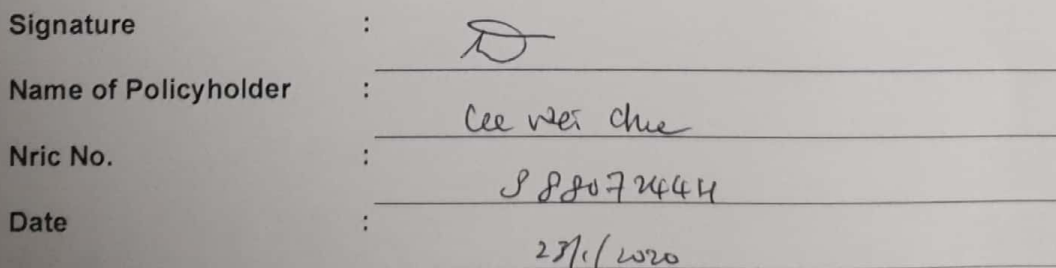 Signature :
Name of Policyholder :
Lee Wei Chie
Nric No. :
S8807244H
Date :
23/1/2020